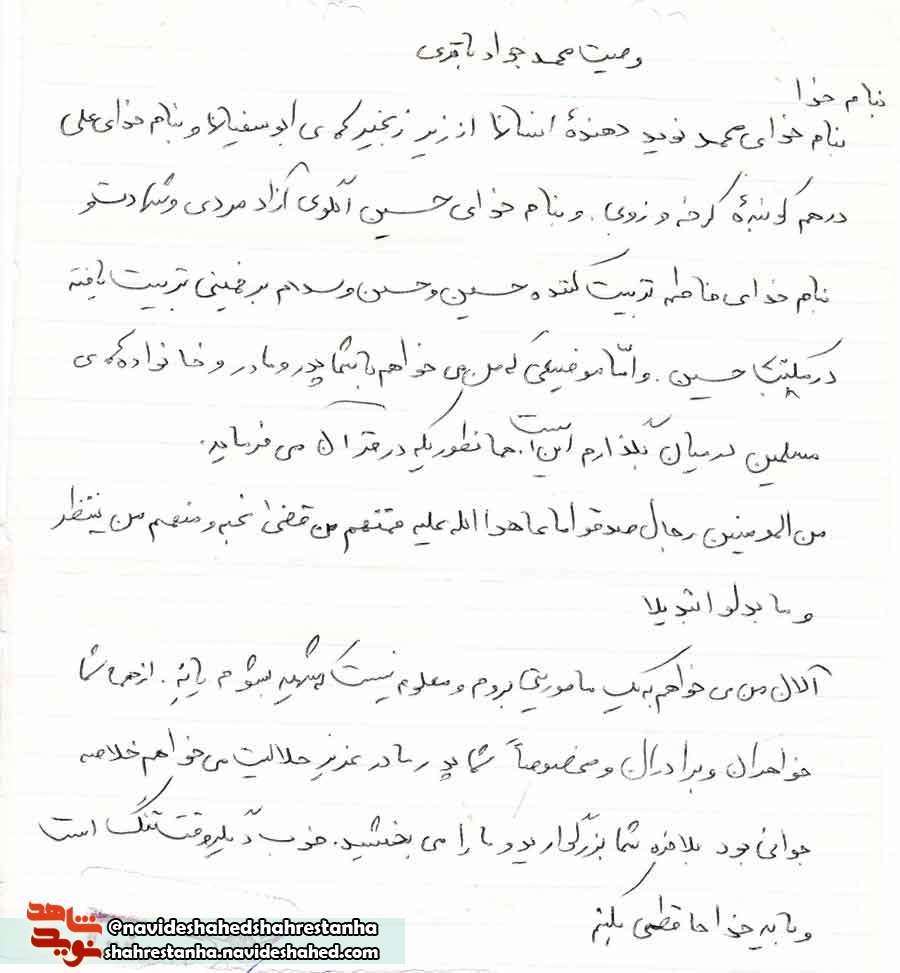 وصیت محمد جواد باقری
بنام خدا
بنام خدای محمد نوید دهندهٔ انسانها از زیر زنجیر های ابوسفیانها و بنام خدای علی
درهم کوبندهٔ کرخه و زوبی. و بنام خدای حسین الگوی آزاد مردی و شهادت و
بنام خدای فاطمه تربیت کننده حسین و حسن و سلام بر خمینی تربیت یافته
در مکتب حسین. و امّا موضوعی که من می خواهم با شما پدر و مادر و خانواده های
مسلمین در میان بگذارم این است. همانطوریکه در قرآن می فرماید.
من المومنین رجال صدقو اماعاهدا الله علیه فمنهم من قضیٰ نحبه و منهم من ینتظر
و ما بدلوا تبدیلا
آلان من می خواهم به یک ماموریتی بروم و معلوم نیست که شهید بشوم یا نه. از همه شما
خواهران و برادران و مخصوصاً شما پدر مادر عزیز حلالیت می خواهم خلاصه
جوانی بود بلاخره شما بزرگوارید و ما را می بخشید. خوب دیگر وقت تنگ است
و باید خدا حافظی بکنم
شاهد
نوید
@navideshahedshahrestanha
shahrestanha.navideshahed.com